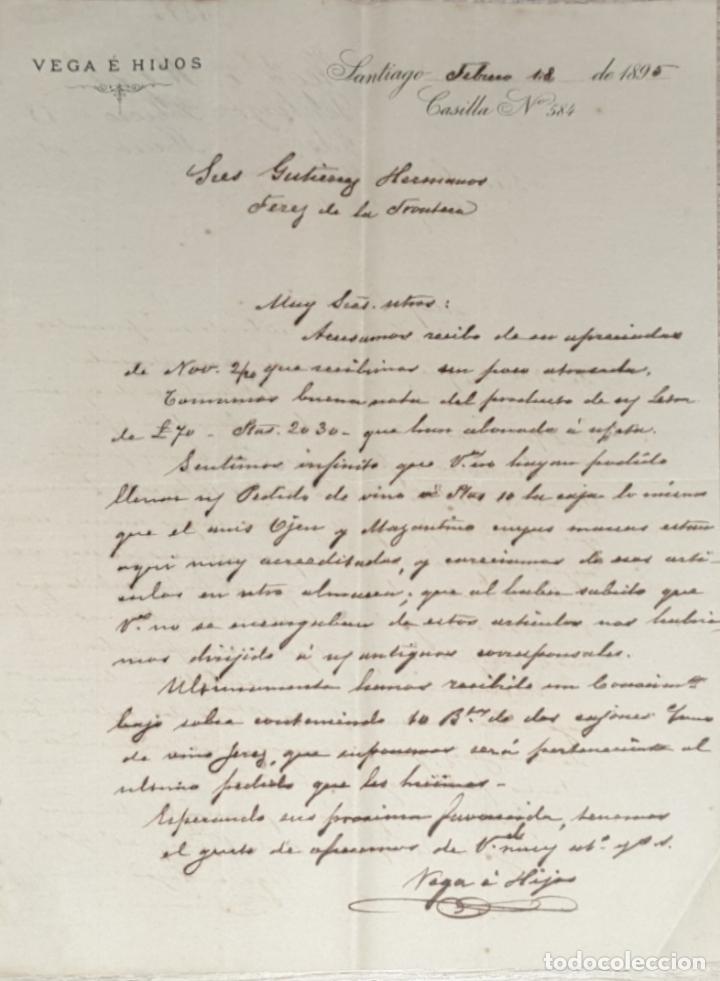 VEGA É HIJOS
Santiago Febrero 18 de 1895
Casilla No 584
Sres Gutierrez Hermanos
Jerez de la Frontera
Muy Sres. ntros:
Acusamos recibo de su apreciada
de Nov. que recibimos un poco atrasada.
Tomamos buena nota del producto de n/ Letra
de £70 - Ptas. 2030 - que han abonado á n/cta.
Sentimos infinito que Vs. no hayan podido
llenar n/ Pedido de vino á Ptas 10 la caja lo mismo
que el anis Ojen y Mazantino cuyas marcas estan
aqui muy acreditadas, y careciamos de esos arti-
culos en ntro almacen; que al haber sabido que
Vs. no se encargaban de estos articulos nos habria-
mos dirijido á n/ antiguos corresponsales.
Ultimamente hemos recibido un Conocimto
bajo sobre conteniendo 10 de dos cajones
de vino Jerez, que suponemos será perteneciente al
ultimo pedido que les hicimos -
Esperando sus proxima favorecida, tenemos
el gusto de ofrecernos de V. muy
Vega é Hijos
todocoleccion